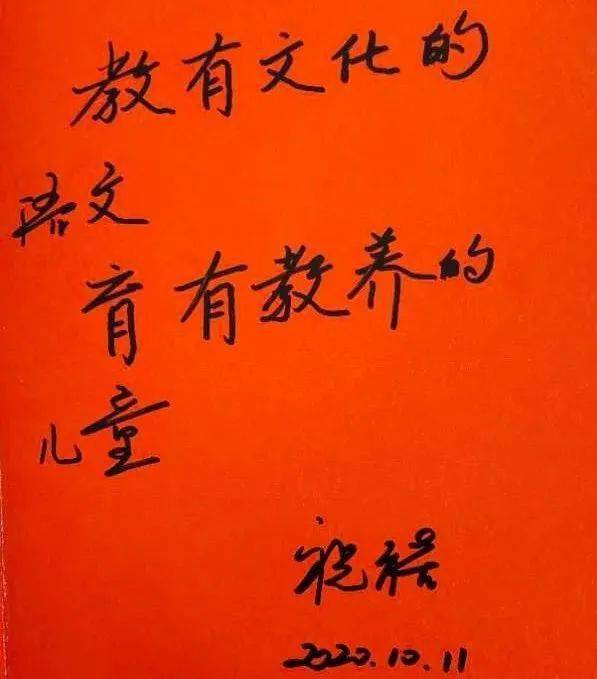 教有文化的
语文
育有教养的
儿童
祝禧
2020.10.11